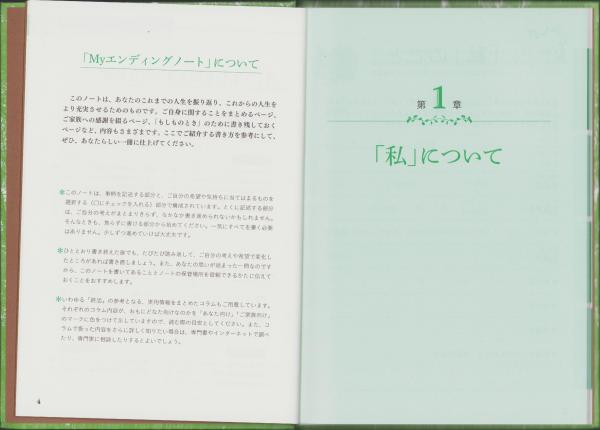 「Myエンディングノート」について
このノートは、あなたのこれまでの人生を振り返り、これからの人生を
より充実させるためのものです。ご自身に関することをまとめるページ、
ご家族への感謝を綴るページ、「もしものとき」のために書き残しておく
ページなど、内容もさまざまです。ここでご紹介する書き方を参考にして、
ぜひ、あなたらしい一冊に仕上げてください。
＊このノートは、事柄を記述する部分と、ご自分の希望や気持ちに当てはまるものを
選択する（□にチェックを入れる）部分で構成されています。とくに記述する部分
は、ご自分の考えがまとまりきらず、なかなか書き進められないかもしれません。
そんなときも、焦らずに書ける部分から始めてください。一気にすべてを書く必要
はありません。少しずつ進めていけば大丈夫です。
＊ひととおり書き終えた後でも、たびたび読み返して、ご自分の考えや希望で変化し
たところがあれば書き直しましょう。また、あなたの思いが詰まった一冊なのです
から、このノートを書いてあることとノートの保管場所を信頼できるかたに伝えて
おくことをおすすめします。
＊いわゆる「終活」の参考となる、実用情報をまとめたコラムもご用意しています。
それぞれのコラム内容が、おもにどなた向けなのかを「あなた向け」「ご家族向け」
のマークに色をつけて示していますので、読む際の目安としてください。また、コ
ラムで扱った内容をさらに詳しく知りたい場合は、専門書やインターネットで調べ
たり、専門家に相談したりするとよいでしょう。
4
第1章
「私」について